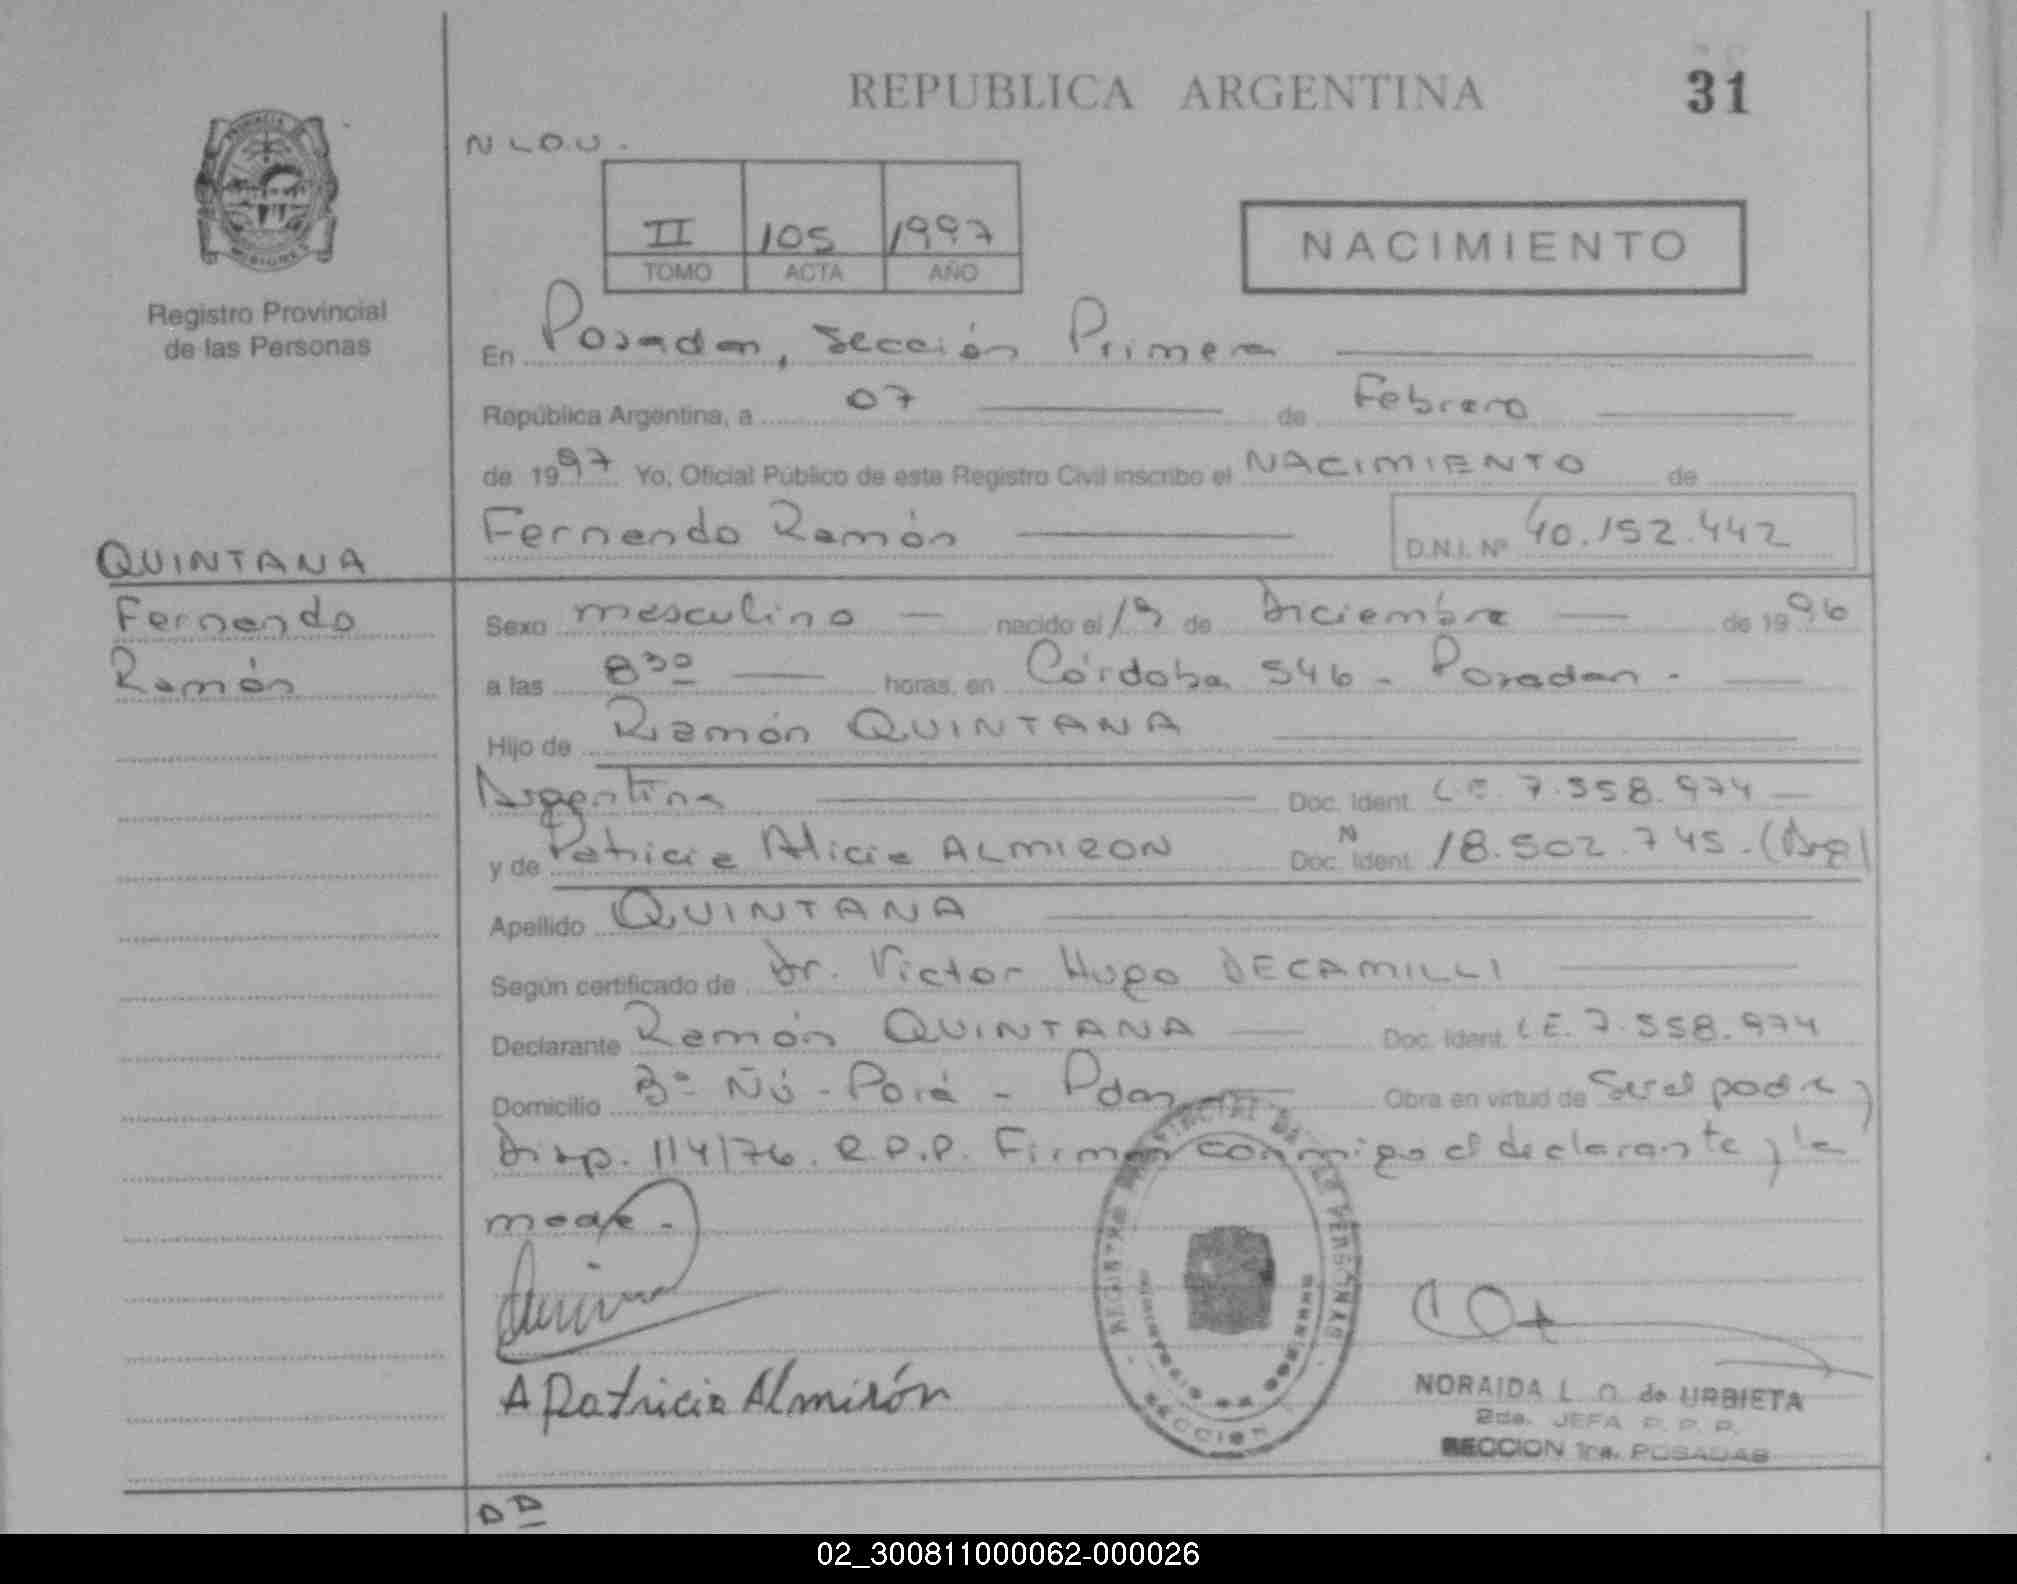 REPUBLICA ARGENTINA
31
N L O. U.
II 105 1997
TOMO ACTA AÑO
NACIMIENTO
Registro Provincial
de las Personas
En Posadas, Sección Primera
República Argentina, a 07 de Febrero
de 1997 Yo, Oficial Público de este Registro Civil inscribo el NACIMIENTO de
Fernando Ramón D.N.I. Nº 40.152.442
QUINTANA
Fernando
Ramón
Sexo masculino nacido el 19 de Diciembre de 1996
a las 8 30 horas, en Córdoba 546 - Posadas -
Hijo de Ramón QUINTANA
Argentina Doc. Ident. L.E. 7.558.974
y de Patricia Alicia ALMIRON Doc. N Ident. 18.502.745. (Arg)
Apellido QUINTANA
Según certificado de Dr. Victor Hugo DECAMILLI
Declarante Ramón QUINTANA Doc. Ident. L.E. 7.558.974
Domicilio Bº Ñú - Porá - Pdas Obra en virtud de Ser el padre y
Disp. 114/76. R.P.P. Firman conmigo el declarante y la
madre.
A Patricia Almirón
REGISTRO PROVINCIAL DE LAS PERSONAS
SECCION
NORAIDA L. O. de URBIETA
2da. JEFA R. P. P.
SECCION 1ra. POSADAS
02_300811000062-000026